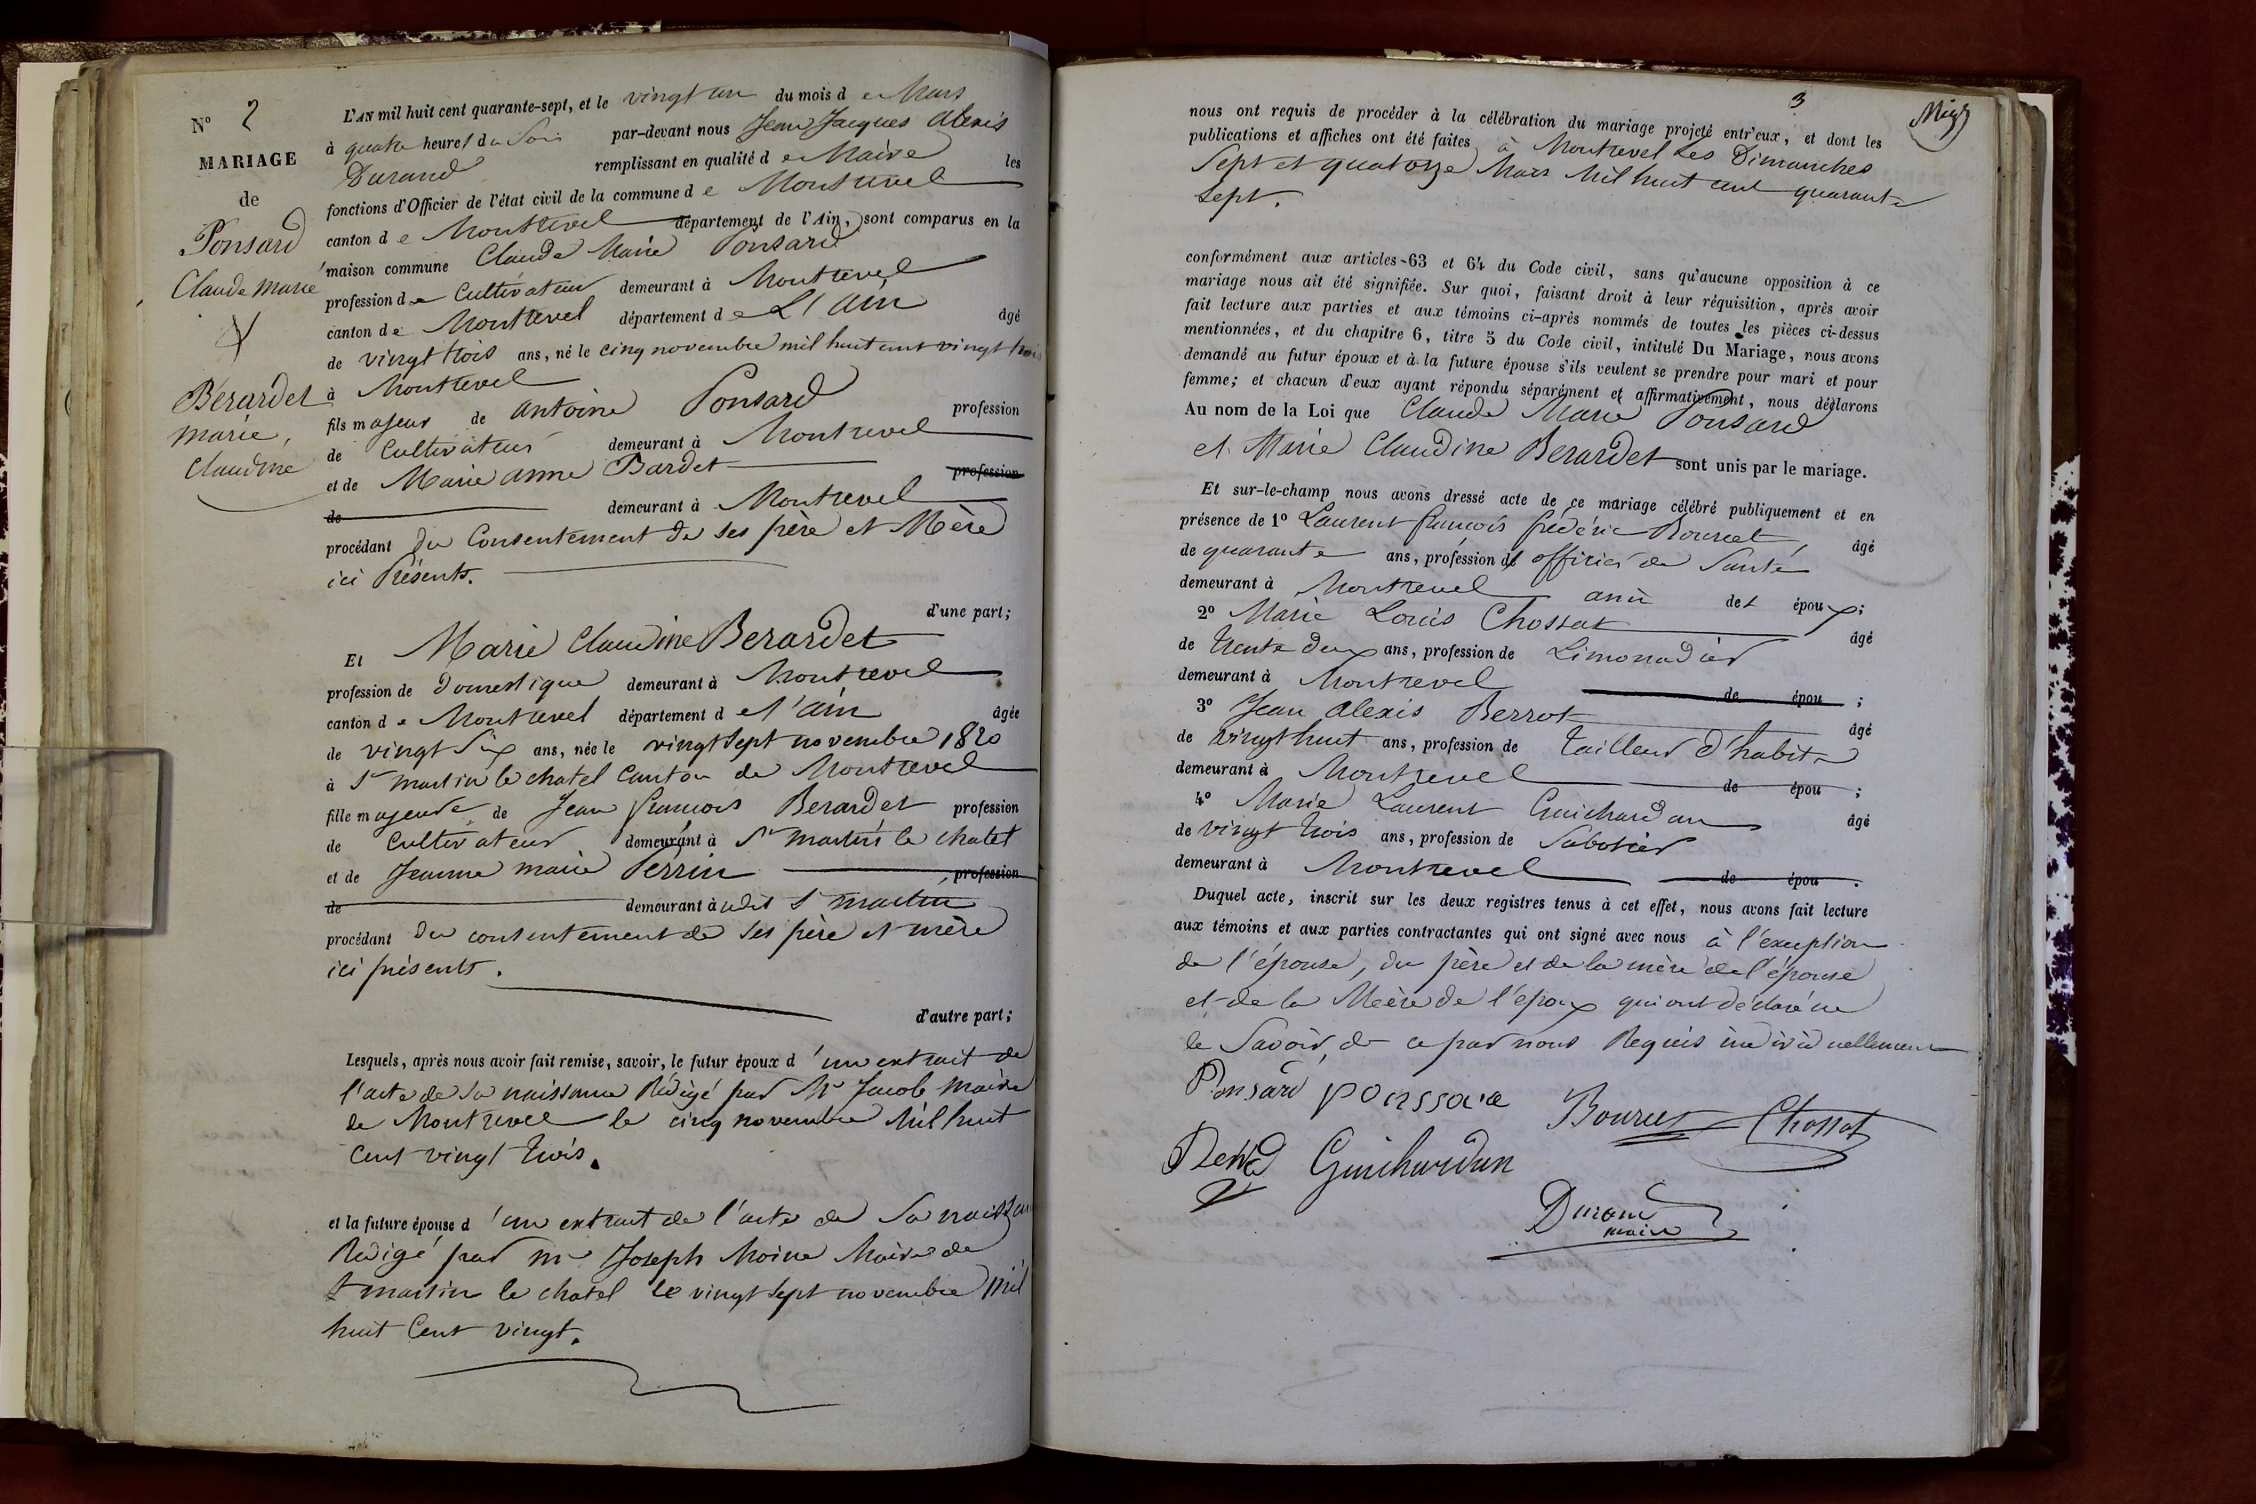 N° 2
MARIAGE
de
Ponsard
Claude Marie
&
Bérardet
Marie,
Claudine
L'AN mil huit cent quarante-sept, et le vingt un du mois d e Mars
à quatre heures du Soir par-devant nous Jean Jacques Alexis
Durand remplissant en qualité d e Maire les
fonctions d'Officier de l'état civil de la commune d e Montrevel
canton d e Montrevel département de l'Ain, sont comparus en la
maison commune Claude Marie Ponsard
profession de Cultivateur demeurant à Montrevel
canton de Montrevel département d e L'Ain âgé
de vingt trois ans, né le cinq novembre mil huit cent vingt trois
à Montrevel
fils majeur de Antoine Ponsard profession
de Cultivateur demeurant à Montrevel
et de Marie Anne Bardet profession
de demeurant à Montrevel
procédant du Consentement de ses père et Mère
ici Présents.
d'une part;
Et Marie Claudine Berardet
profession de Domestique demeurant à Montrevel
canton d e Montrevel département d e l'Ain âgée
de vingt Six ans, née le vingt sept novembre 1820
à St martin le chatel Canton de Montrevel
fille majeure de Jean François Berardet profession
de Cultivateur demeurant à St martin le chatel
et de Jeanne marie Perrin profession
de demeurant à udit St martin
procédant du consentement de ses père et mère
ici présents.
d'autre part;
Lesquels, après nous avoir fait remise, savoir, le futur époux d 'un extrait de
l'acte de sa naissance Rédigé par Mr Jacob Maire
de Montrevel le cinq novembre Mil huit
Cent vingt trois.
et la future épouse d 'un extrait de l'acte de Sa naissance
Rédigé par mr Joseph Moine Maire de
St martin le chatel le vingt sept novembre mil
huit Cent vingt.
3
nous ont requis de procéder à la célébration du mariage projeté entr'eux, et dont les
publications et affiches ont été faites à Montrevel Les Dimanches
Sept et quatorze Mars Mil huit cent quarante
Sept.
conformément aux articles 63 et 64 du Code civil, sans qu'aucune opposition à ce
mariage nous ait été signifiée. Sur quoi, faisant droit à leur réquisition, après avoir
fait lecture aux parties et aux témoins ci-après nommés de toutes les pièces ci-dessus
mentionnées, et du chapitre 6, titre 5 du Code civil, intitulé Du Mariage, nous avons
demandé au futur époux et à la future épouse s'ils veulent se prendre pour mari et pour
femme; et chacun d'eux ayant répondu séparément et affirmativement, nous déclarons
Au nom de la Loi que Claude Marie Ponsard
et Marie Claudine Berardet sont unis par le mariage.
Et sur-le-champ nous avons dressé acte de ce mariage célébré publiquement et en
présence de 1° Laurent francois frédéric Bourcet, âgé
de quarante ans, profession d' officier de Santé
demeurant à Montrevel ami de L époux;
2° Marie Louis Chossat âgé
de Trente deux ans, profession de Limonadier
demeurant à Montrevel de épou ;
3° Jean Alexis Berrot âgé
de vingt huit ans, profession de Tailleur d'habits
demeurant à Montrevel de épou ;
4° Marie Laurent Guichardan âgé
de vingt trois ans, profession de Sabotier
demeurant à Montrevel de épou .
Duquel acte, inscrit sur les deux registres tenus à cet effet, nous avons fait lecture
aux témoins et aux parties contractantes qui ont signé avec nous à l'exception
de l'épouse, du père et de la mère de l'épouse
et de la Mère de l'époux qui ont déclaré ne
le Savoir, de ce par nous Requis individuellement
Ponsard Bourcet Chossat
Guichardan
Durand
maire